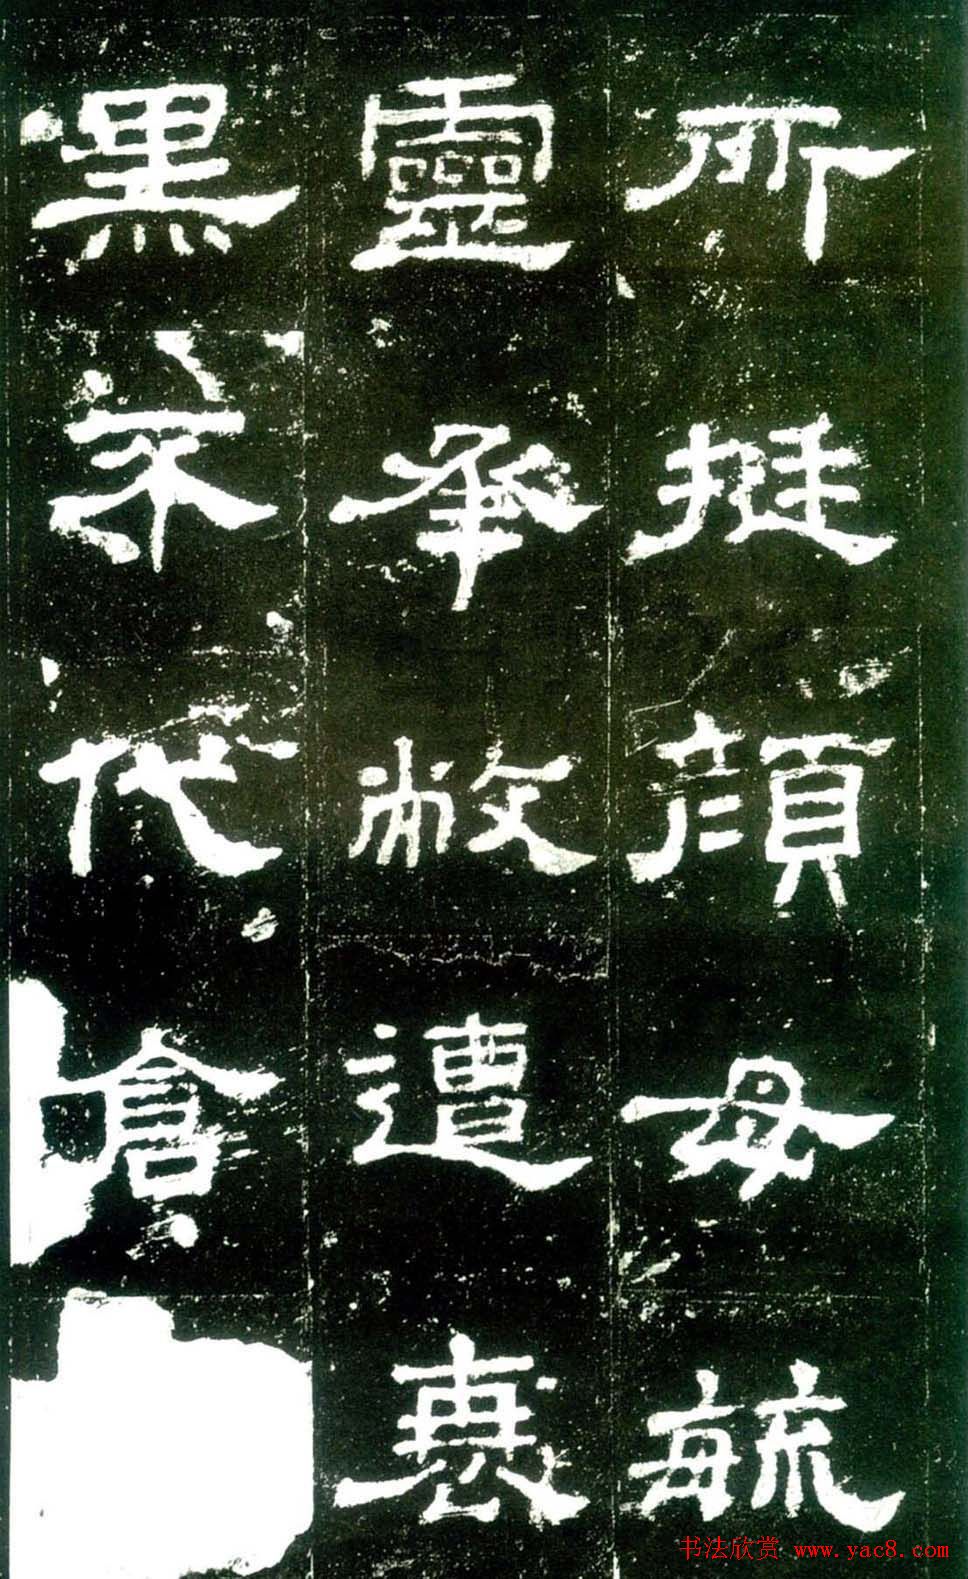 所挺顏母毓
靈承敝遭衰
黑不代倉
书法欣赏 www.yac8.com